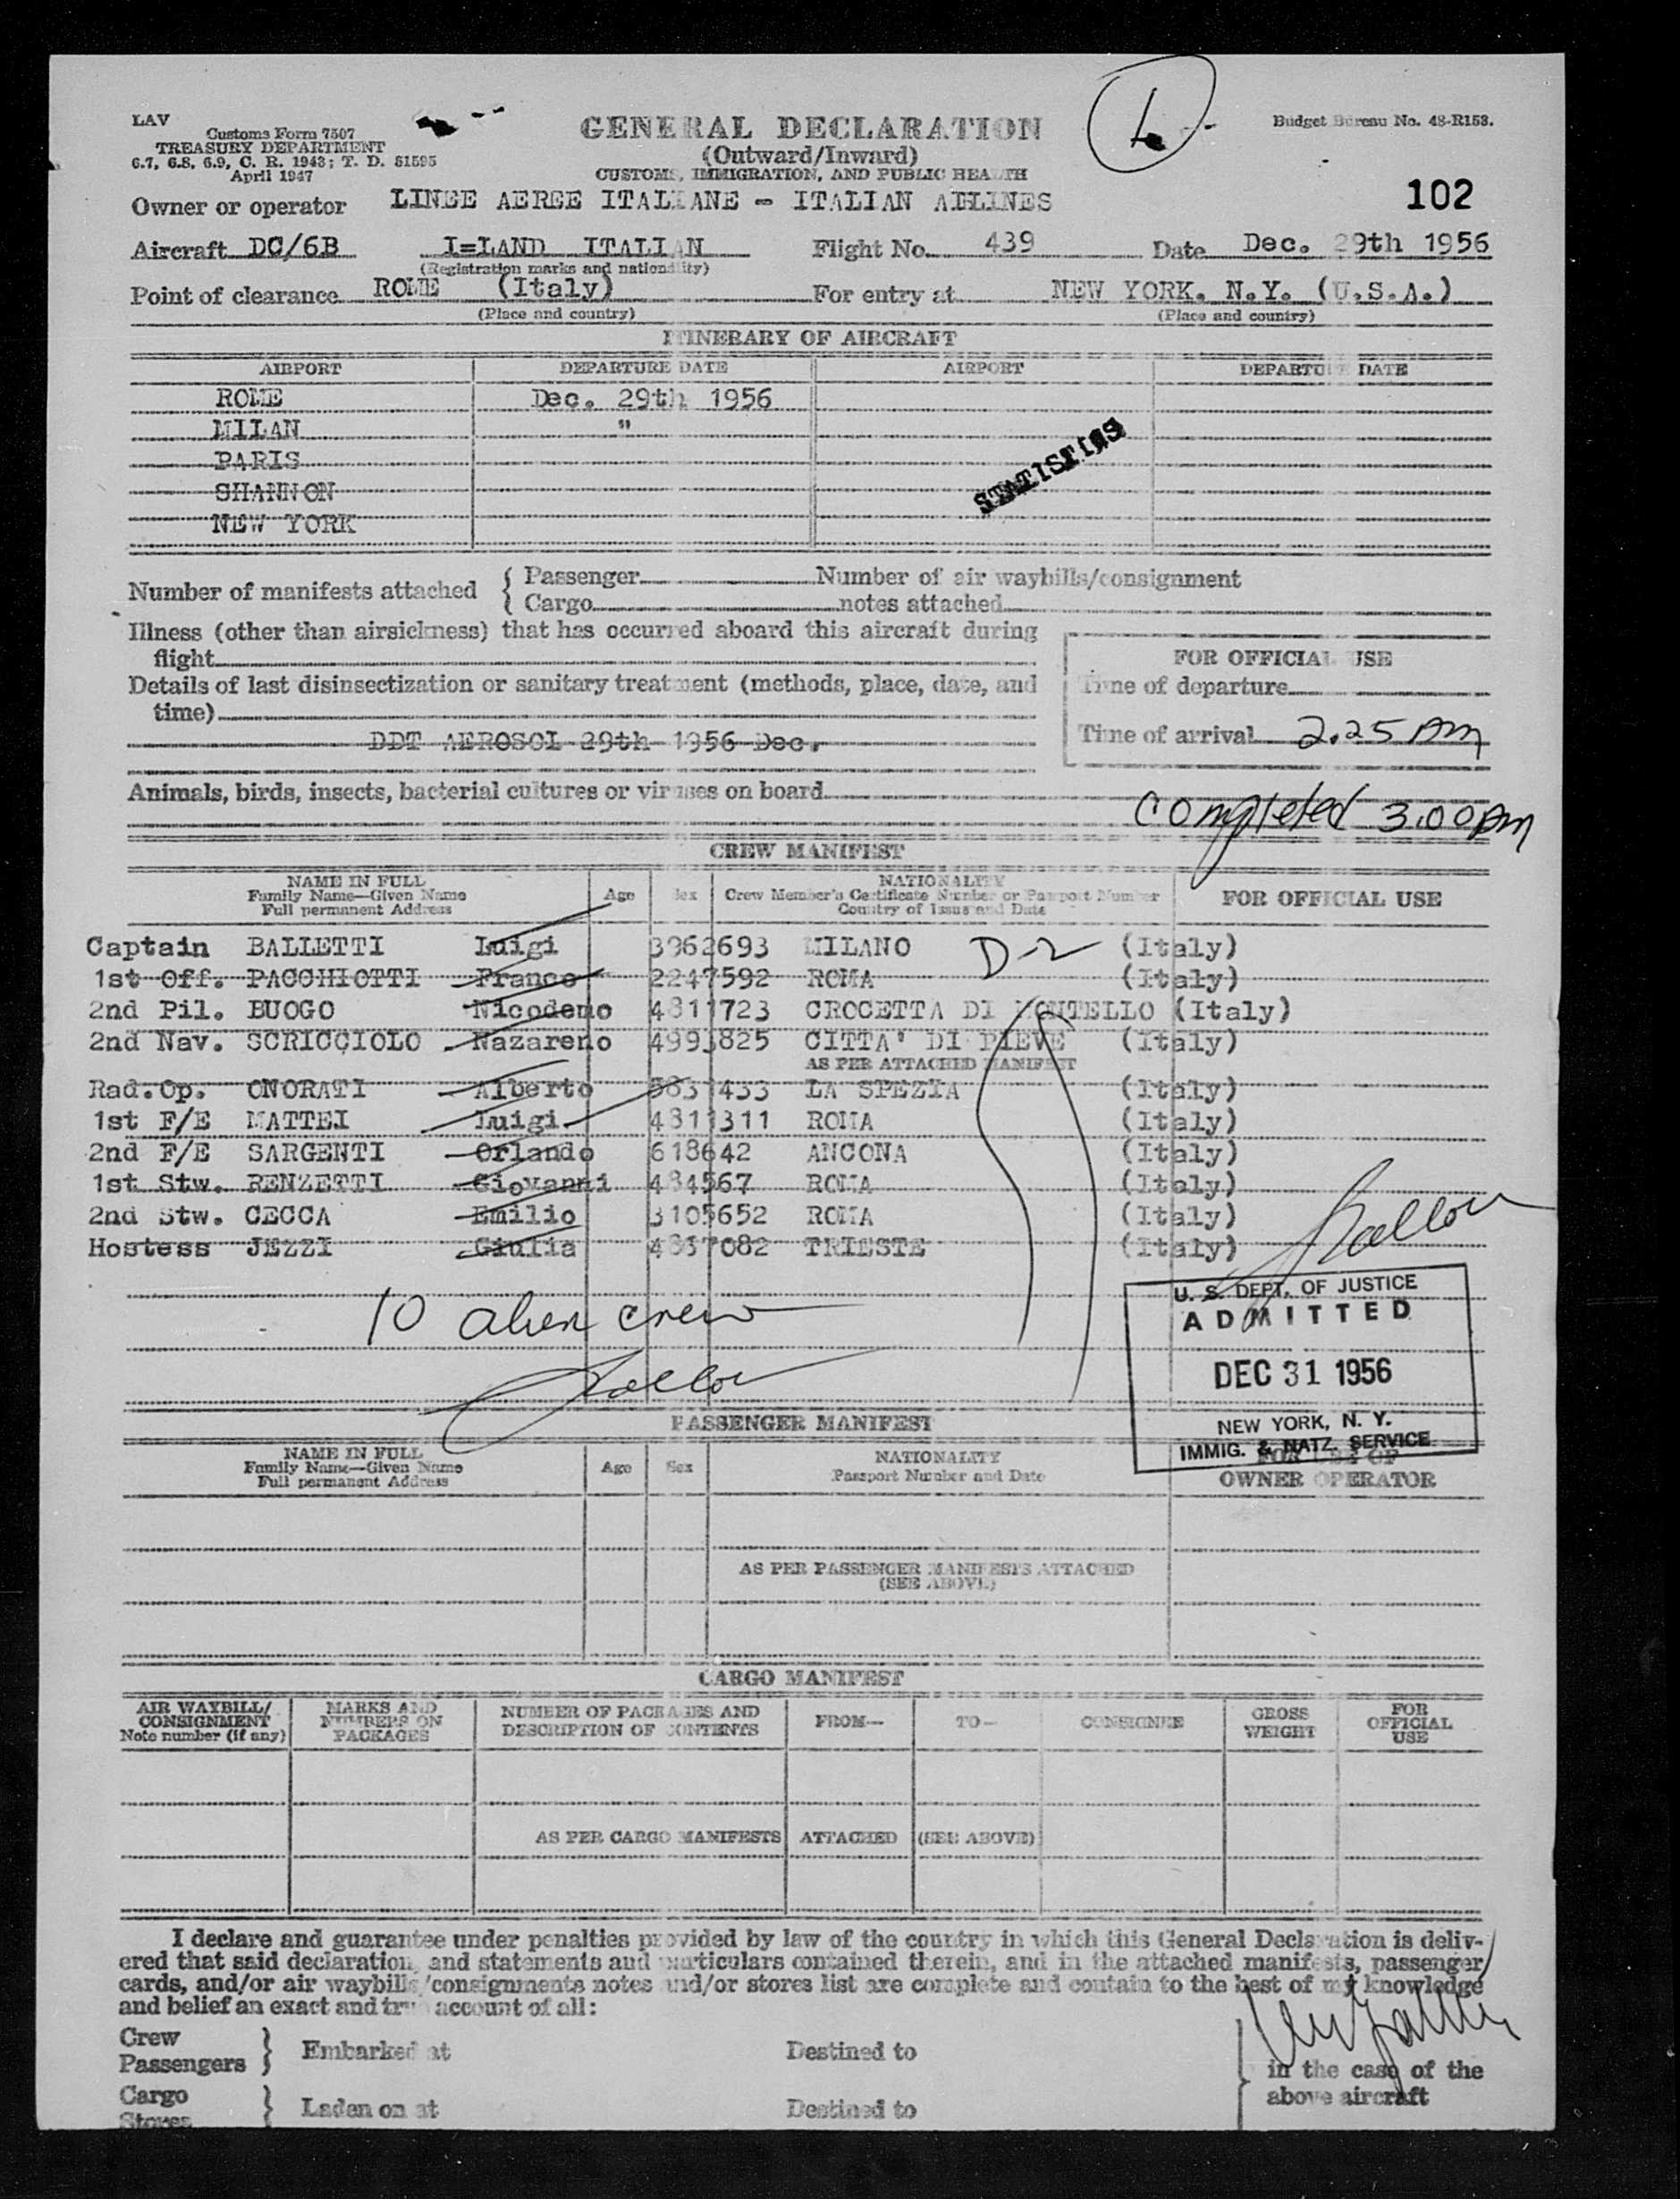 LAV
Customs Form 7507
TREASURY DEPARTMENT
6.7, 6.8, 6.9, C. R. 1943; T. D. 51595
April 1947
GENERAL DECLARATION
(Outward/Inward)
CUSTOMS, IMMIGRATION, AND PUBLIC HEALTH
Budget Bureau No. 48-R153.
102
Owner or operator LINEE AEREE ITALIANE - ITALIAN AIRLINES
Aircraft DC/6B I=LAND ITALIAN Flight No. 439 Date Dec. 29th 1956
(Registration marks and nationality)
Point of clearance ROME (Italy) For entry at NEW YORK. N.Y. (U.S.A.)
(Place and country) (Place and country)
ITINERARY OF AIRCRAFT
AIRPORT DEPARTURE DATE AIRPORT DEPARTURE DATE
ROME Dec. 29th 1956
MILAN "
PARIS
SHANNON
NEW YORK
STATISTICS
Number of manifests attached { Passenger Number of air waybills/consignment
Cargo notes attached
Illness (other than airsickness) that has occurred aboard this aircraft during
flight
Details of last disinsectization or sanitary treatment (methods, place, date, and
time)
DDT AEROSOL 29th 1956 Dec.
FOR OFFICIAL USE
Time of departure
Time of arrival 2.25 PM
Animals, birds, insects, bacterial cultures or viruses on board
Completed 3.00pm
CREW MANIFEST
NAME IN FULL
Family Name—Given Name
Full permanent Address
Age
Sex
NATIONALITY
Crew Member's Certificate Number or Passport Number
Country of Issue and Date
FOR OFFICIAL USE
Captain BALLETTI Luigi 3962693 MILANO D-2 (Italy)
1st Off. PACCHIOTTI Franco 2247592 ROMA (Italy)
2nd Pil. BUOGO Nicodemo 4811723 CROCETTA DI MONTELLO (Italy)
2nd Nav. SCRICCIOLO Nazareno 4993825 CITTA' DI PIEVE (Italy)
AS PER ATTACHED MANIFEST
Rad.Op. ONORATI Alberto 5831433 LA SPEZIA (Italy)
1st F/E MATTEI Luigi 4811311 ROMA (Italy)
2nd F/E SARGENTI Orlando 618642 ANCONA (Italy)
1st Stw. RENZETTI Giovanni 484567 ROMA (Italy)
2nd Stw. CECCA Emilio 3105652 ROMA (Italy)
Hostess JEZZI Giulia 4837082 TRIESTE (Italy)
10 alien crew
U. S. DEPT. OF JUSTICE
ADMITTED
DEC 31 1956
NEW YORK, N. Y.
IMMIG. & NATZ. SERVICE
PASSENGER MANIFEST
NAME IN FULL
Family Name—Given Name
Full permanent Address
Age
Sex
NATIONALITY
Passport Number and Date
FOR USE OF
OWNER OPERATOR
AS PER PASSENGER MANIFESTS ATTACHED
(SEE ABOVE)
CARGO MANIFEST
AIR WAYBILL/
CONSIGNMENT
Note number (if any)
MARKS AND
NUMBERS ON
PACKAGES
NUMBER OF PACKAGES AND
DESCRIPTION OF CONTENTS
FROM—
TO—
CONSIGNEE
GROSS
WEIGHT
FOR
OFFICIAL
USE
AS PER CARGO MANIFESTS ATTACHED (SEE ABOVE)
I declare and guarantee under penalties provided by law of the country in which this General Declaration is deliv-
ered that said declaration, and statements and particulars contained therein, and in the attached manifests, passenger
cards, and/or air waybills/consignments notes and/or stores list are complete and contain to the best of my knowledge
and belief an exact and true account of all:
Crew
Passengers } Embarked at Destined to
in the case of the
above aircraft
Cargo
Stores } Laden on at Destined to